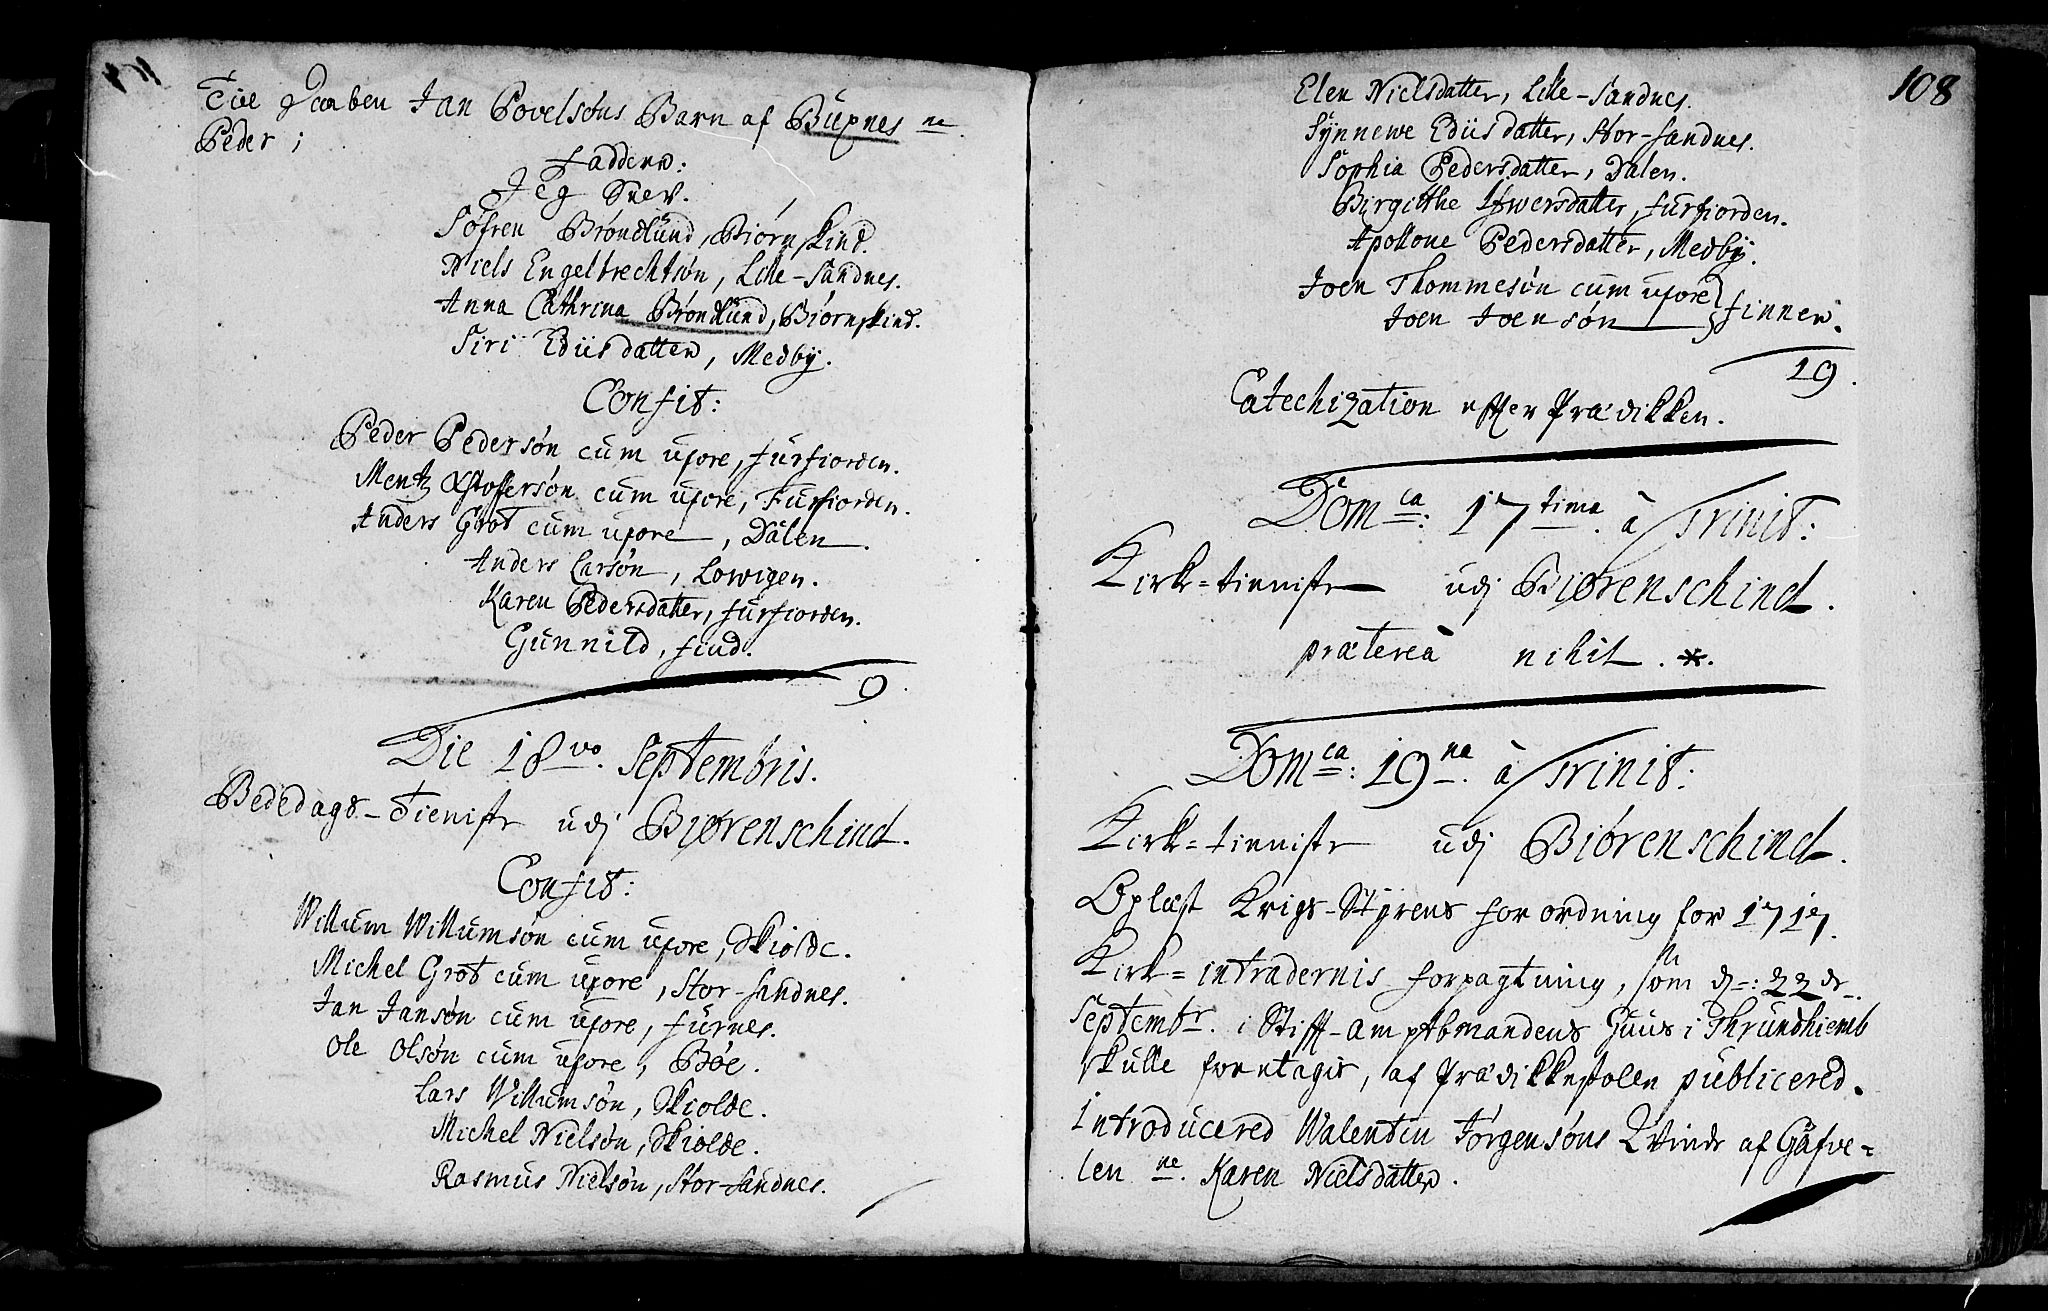 Til Daaben Jan Povelsøns Barn af Buxnes ne.
Peder ;
Faddere:
Jeg Selv.
Søfren Brøndlund, Biørnskind.
Niels Engelbrechtsøn, Lille-Sandnes.
Anna Cathrina Brøndlund, Biørnskind.
Siri Ediisdatter, Medby.
Confit:
Peder Pedersøn cum uxore, Furfiorden.
Mentz Xstoffersøn cum uxore, Furfiorden.
Anders Grot cum uxore, Dalen.
Anders Larsøn, Lovigen.
Karen Pedersdatter, Furfiorden.
Gunnild, find.
9.
Die 18vo. Septembris.
Bededags-Tieniste udj Biørenschind.
Confit:
Willum Willumsøn cum uxore, Skiolde.
Michel Grot cum uxore, Stor-Sandnes.
Jan Jansøn cum uxore, Furnes.
Ole Olsøn cum uxore, Bøe.
Lars Willumsøn, Skiolde.
Michel Nielsøn, Skiolde.
Rasmus Nielsøn, Stor-Sandnes.
108
Elen Nielsdatter, Lille-Sandnes.
Synnewe Ediisdatter, Stor-Sandnes.
Sophia Pedersdatter, Dalen.
Birgitthe Ifwersdatter, Furfiorden.
Apollone Pedersdatter, Medby.
Joen Thommesøn cum uxore
Joen Joensøn } finner.
19.
Catechization effter Prædikken.
Domca: 17tima. à Trinit:
Kirke=tienniste udj Biørenschind.
præterea nihil. *.
Domca: 19na. à Trinit:
Kirke=tienniste udj Biørenschind.
Oplæst Krigs-Styrens forordning for 1717.
Kirke=intradernis forpagtning, som d: 22de
Septembr. i Stiff-amptmandens Huus i Thrundhiemb
skulle foretagis, af Prædikkestolen publicered.
Introducered Walentin Jørgensøns Qvinde af Gafve=
len ne. Karen Nielsdatter.